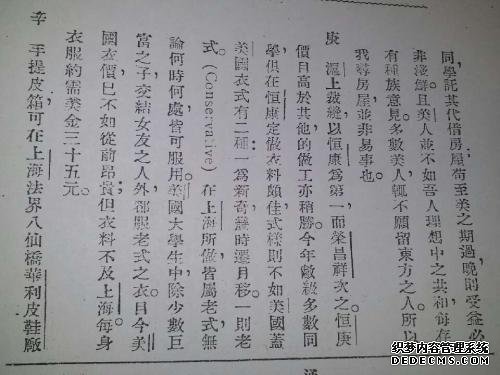 同學託其代借房屋苟至美之期過晚則受益必
非淺鮮。且美人並不如吾人理想中之共和每存
有種族意見。多數美人,輒不願留東方之人。所以
我尋房屋,並非易事也。
庚 滬上裁縫,以恒康為第一,而榮昌祥次之。恒康
價目高於其他,的做工亦稍勝。今年敝級多數同
學,俱在恒康定做衣料頗佳,式樣則不如美國。蓋
美國衣式有二種:一為新奇,時遷月移。一則老
式。(Conservative) 在上海所做皆屬老式,無
論何時何處,皆可服用。美國大學生中,除少數巨
富之子,交結女友之人外,都服老式之衣。目今美
國衣價,已不如從前昂貴,但衣料不及上海。每身
衣服約需美金三十五元。
辛 手提皮箱,可在上海法界八仙橋華利皮鞋廠
电脑软硬件教程网
www.computer26.com